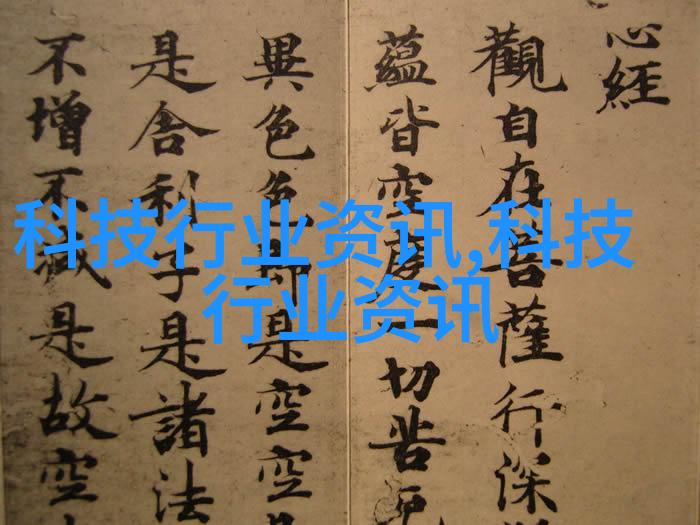 心經
觀自在菩薩行深
蘊皆空度一切苦厄
異色色即是空空
是舍利子是諸法
不增不減是故空
科技行业资讯,科技
行业资讯